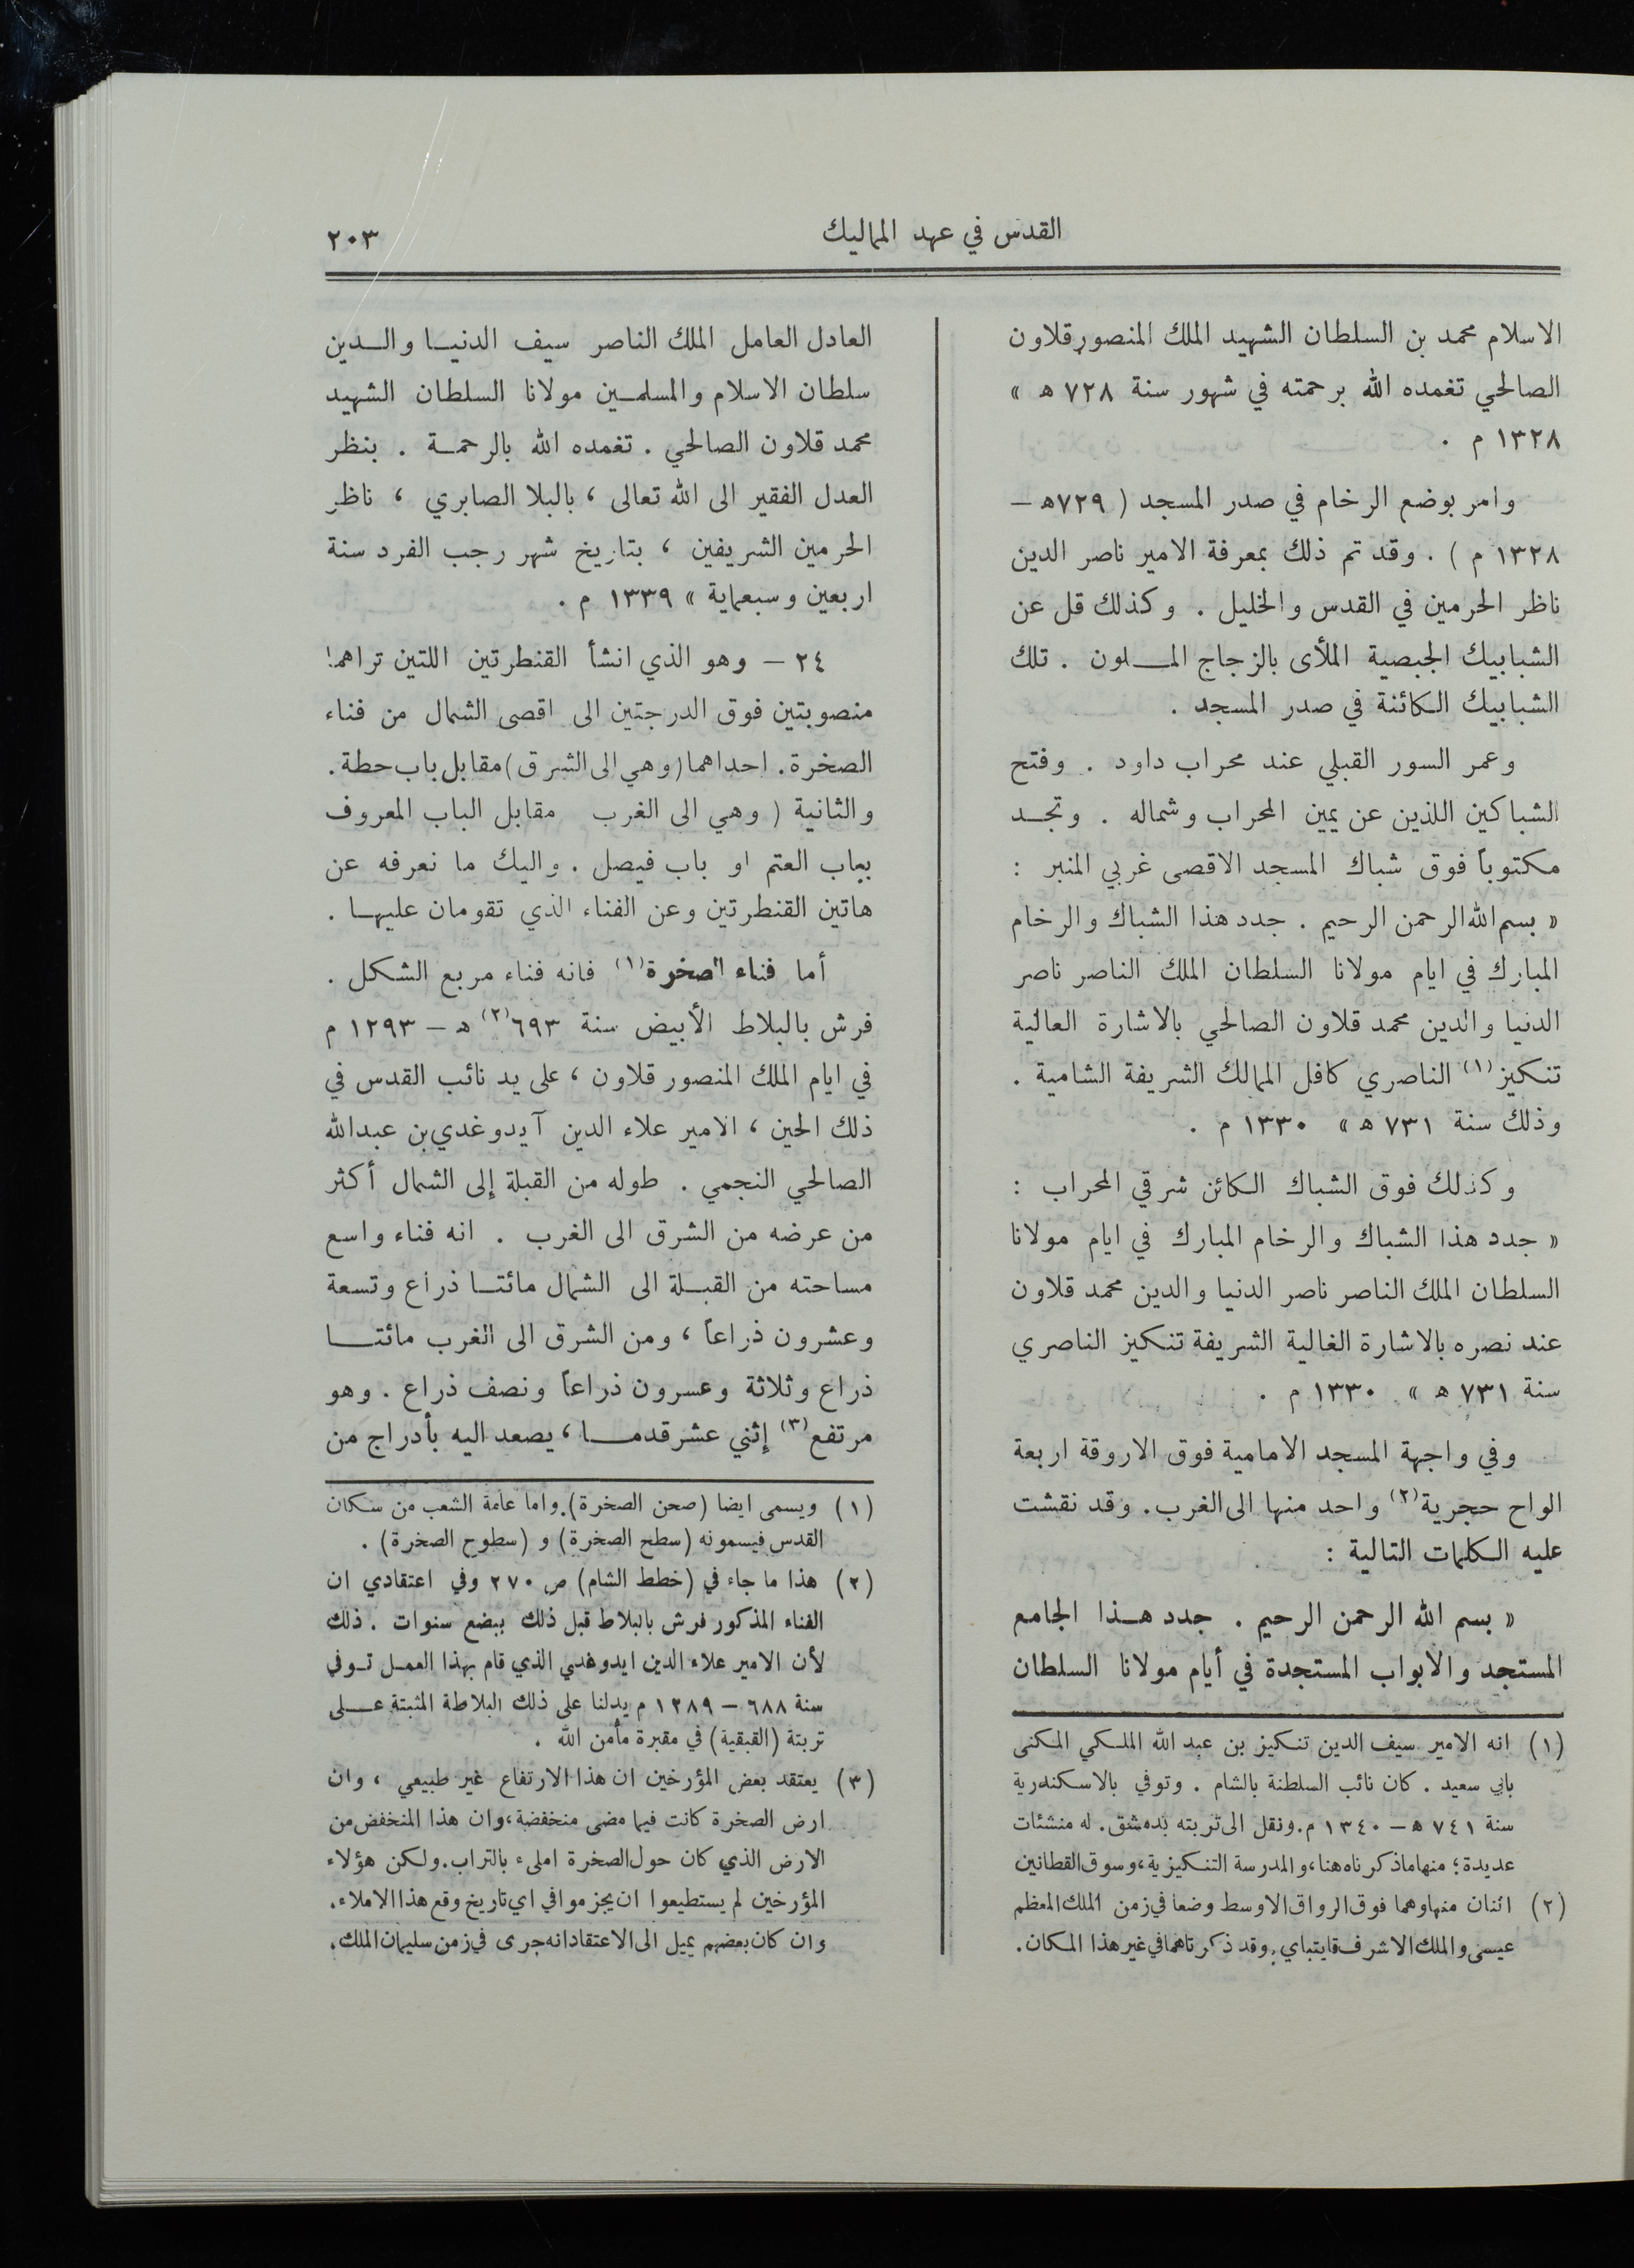 القدس في عهد المماليك
٢٠٣
الاسلام محمد بن السلطان الشهيد الملك المنصور قلاون
الصالحي تغمده الله برحمته في شهور سنة ٧٢٨ ھ »
١٣٢٨ م .
وامر بوضع الرخام في صدر المسجد ( ٧٢٩ھ –
١٣٢٨ م ) . وقد تم ذلك بمعرفة الامير ناصر الدين
ناظر الحرمين في القدس والخليل . وكذلك قل عن
الشبابيك الجبصية الملأى بالزجاج الملون . تلك
الشبابيك الكائنة في صدر المسجد .
وعمر السور القبلي عند محراب داود . وفتح
الشباكين اللذين عن يمين المحراب وشماله . وتجد
مكتوباً فوق شباك المسجد الاقصى غربي المنبر :
« بسم الله الرحمن الرحيم . جدد هذا الشباك والرخام
المبارك في ايام مولانا السلطان الملك الناصر ناصر
الدنيا والدين محمد قلاون الصالحي بالاشارة العالية
تنكيز(١) الناصري كافل الممالك الشريفة الشامية .
وذلك سنة ٧٣١ ھ » ١٣٣٠ م .
وكذلك فوق الشباك الكائن شرقي المحراب :
« جدد هذا الشباك والرخام المبارك في ايام مولانا
السلطان الملك الناصر ناصر الدنيا والدين محمد قلاون
عند نصره بالاشارة الغالية الشريفة تنكيز الناصري
سنة ٧٣١ ھ » ١٣٣٠ م .
وفي واجهة المسجد الامامية فوق الاروقة اربعة
الواح حجرية(٢) واحد منها الى الغرب. وقد نقشت
عليه الكلمات التالية :
« بسم الله الرحمن الرحيم . جدد هذا الجامع
المستجد والابواب المستجدة في أيام مولانا السلطان
(١) انه الامير سيف الدين تنكيز بن عبد الله الملكي المكنى
بابي سعيد . كان نائب السلطنة بالشام . وتوفي بالاسكندرية
سنة ٧٤١ ھ – ١٣٤٠ م. ونقل الى تربته بدمشق. له منشئات
عديدة؛ منها ماذكرناه هنا، والمدرسة التنكيزية، وسوق القطانين
(٢) اثنان منها وهما فوق الرواق الاوسط وضعا في زمن الملك المعظم
عيسى والملك الاشرف قايتباي. وقد ذكرناهما في غير هذا المكان.
العادل العامل الملك الناصر سيف الدنيا والدين
سلطان الاسلام والمسلمين مولانا السلطان الشهيد
محمد قلاون الصالحي . تغمده الله بالرحمة . بنظر
العدل الفقير الى الله تعالى ، بالبلا الصابري ، ناظر
الحرمين الشريفين ، بتاريخ شهر رجب الفرد سنة
اربعين وسبعماية » ١٣٣٩ م .
٢٤ – وهو الذي انشأ القنطرتين اللتين تراهما
منصوبتين فوق الدرجتين الى اقصى الشمال من فناء
الصخرة. احداهما (وهي الى الشرق) مقابل باب حطة.
والثانية ( وهي الى الغرب مقابل الباب المعروف
بباب العتم او باب فيصل . واليك ما نعرفه عن
هاتين القنطرتين وعن الفناء الذي تقومان عليها .
أما فناء الصخرة(١) فانه فناء مربع الشكل .
فرش بالبلاط الأبيض سنة ٦٩٣(٢) ھ – ١٢٩٣ م
في ايام الملك المنصور قلاون ، على يد نائب القدس في
ذلك الحين ، الامير علاء الدين آيدوغدي بن عبدالله
الصالحي النجمي . طوله من القبلة إلى الشمال أكثر
من عرضه من الشرق الى الغرب . انه فناء واسع
مساحته من القبلة الى الشمال مائتا ذراع وتسعة
وعشرون ذراعاً ، ومن الشرق الى الغرب مائتا
ذراع وثلاثة وعسرون ذراعاً ونصف ذراع . وهو
مرتفع(٣) إثني عشر قدما ، يصعد اليه بأدراج من
(١) ويسمى ايضا (صحن الصخرة). واما عامة الشعب من سكان
القدس فيسمونه (سطح الصخرة) و (سطوح الصخرة) .
(٢) هذا ما جاء في (خطط الشام) ص ٢٧٠ وفي اعتقادي ان
الفناء المذكور فرش بالبلاط قبل ذلك ببضع سنوات . ذلك
لأن الامير علاء الدين ايدوغدي الذي قام بهذا العمل توفي
سنة ٦٨٨ – ١٢٨٩ م يدلنا على ذلك البلاطة المثبتة على
تربتة (القبقبية) في مقبرة مأمن الله .
(٣) يعتقد بعض المؤرخين ان هذا الارتفاع غير طبيعي ، وان
ارض الصخرة كانت فيما مضى منخفضة، وان هذا المنخفض من
الارض الذي كان حول الصخرة املىء بالتراب. ولكن هؤلاء
المؤرخين لم يستطيعوا ان يجزموا في اي تاريخ وقع هذا الاملاء.
وان كان بعضهم يميل الى الاعتقاد انه جرى في زمن سليمان الملك.